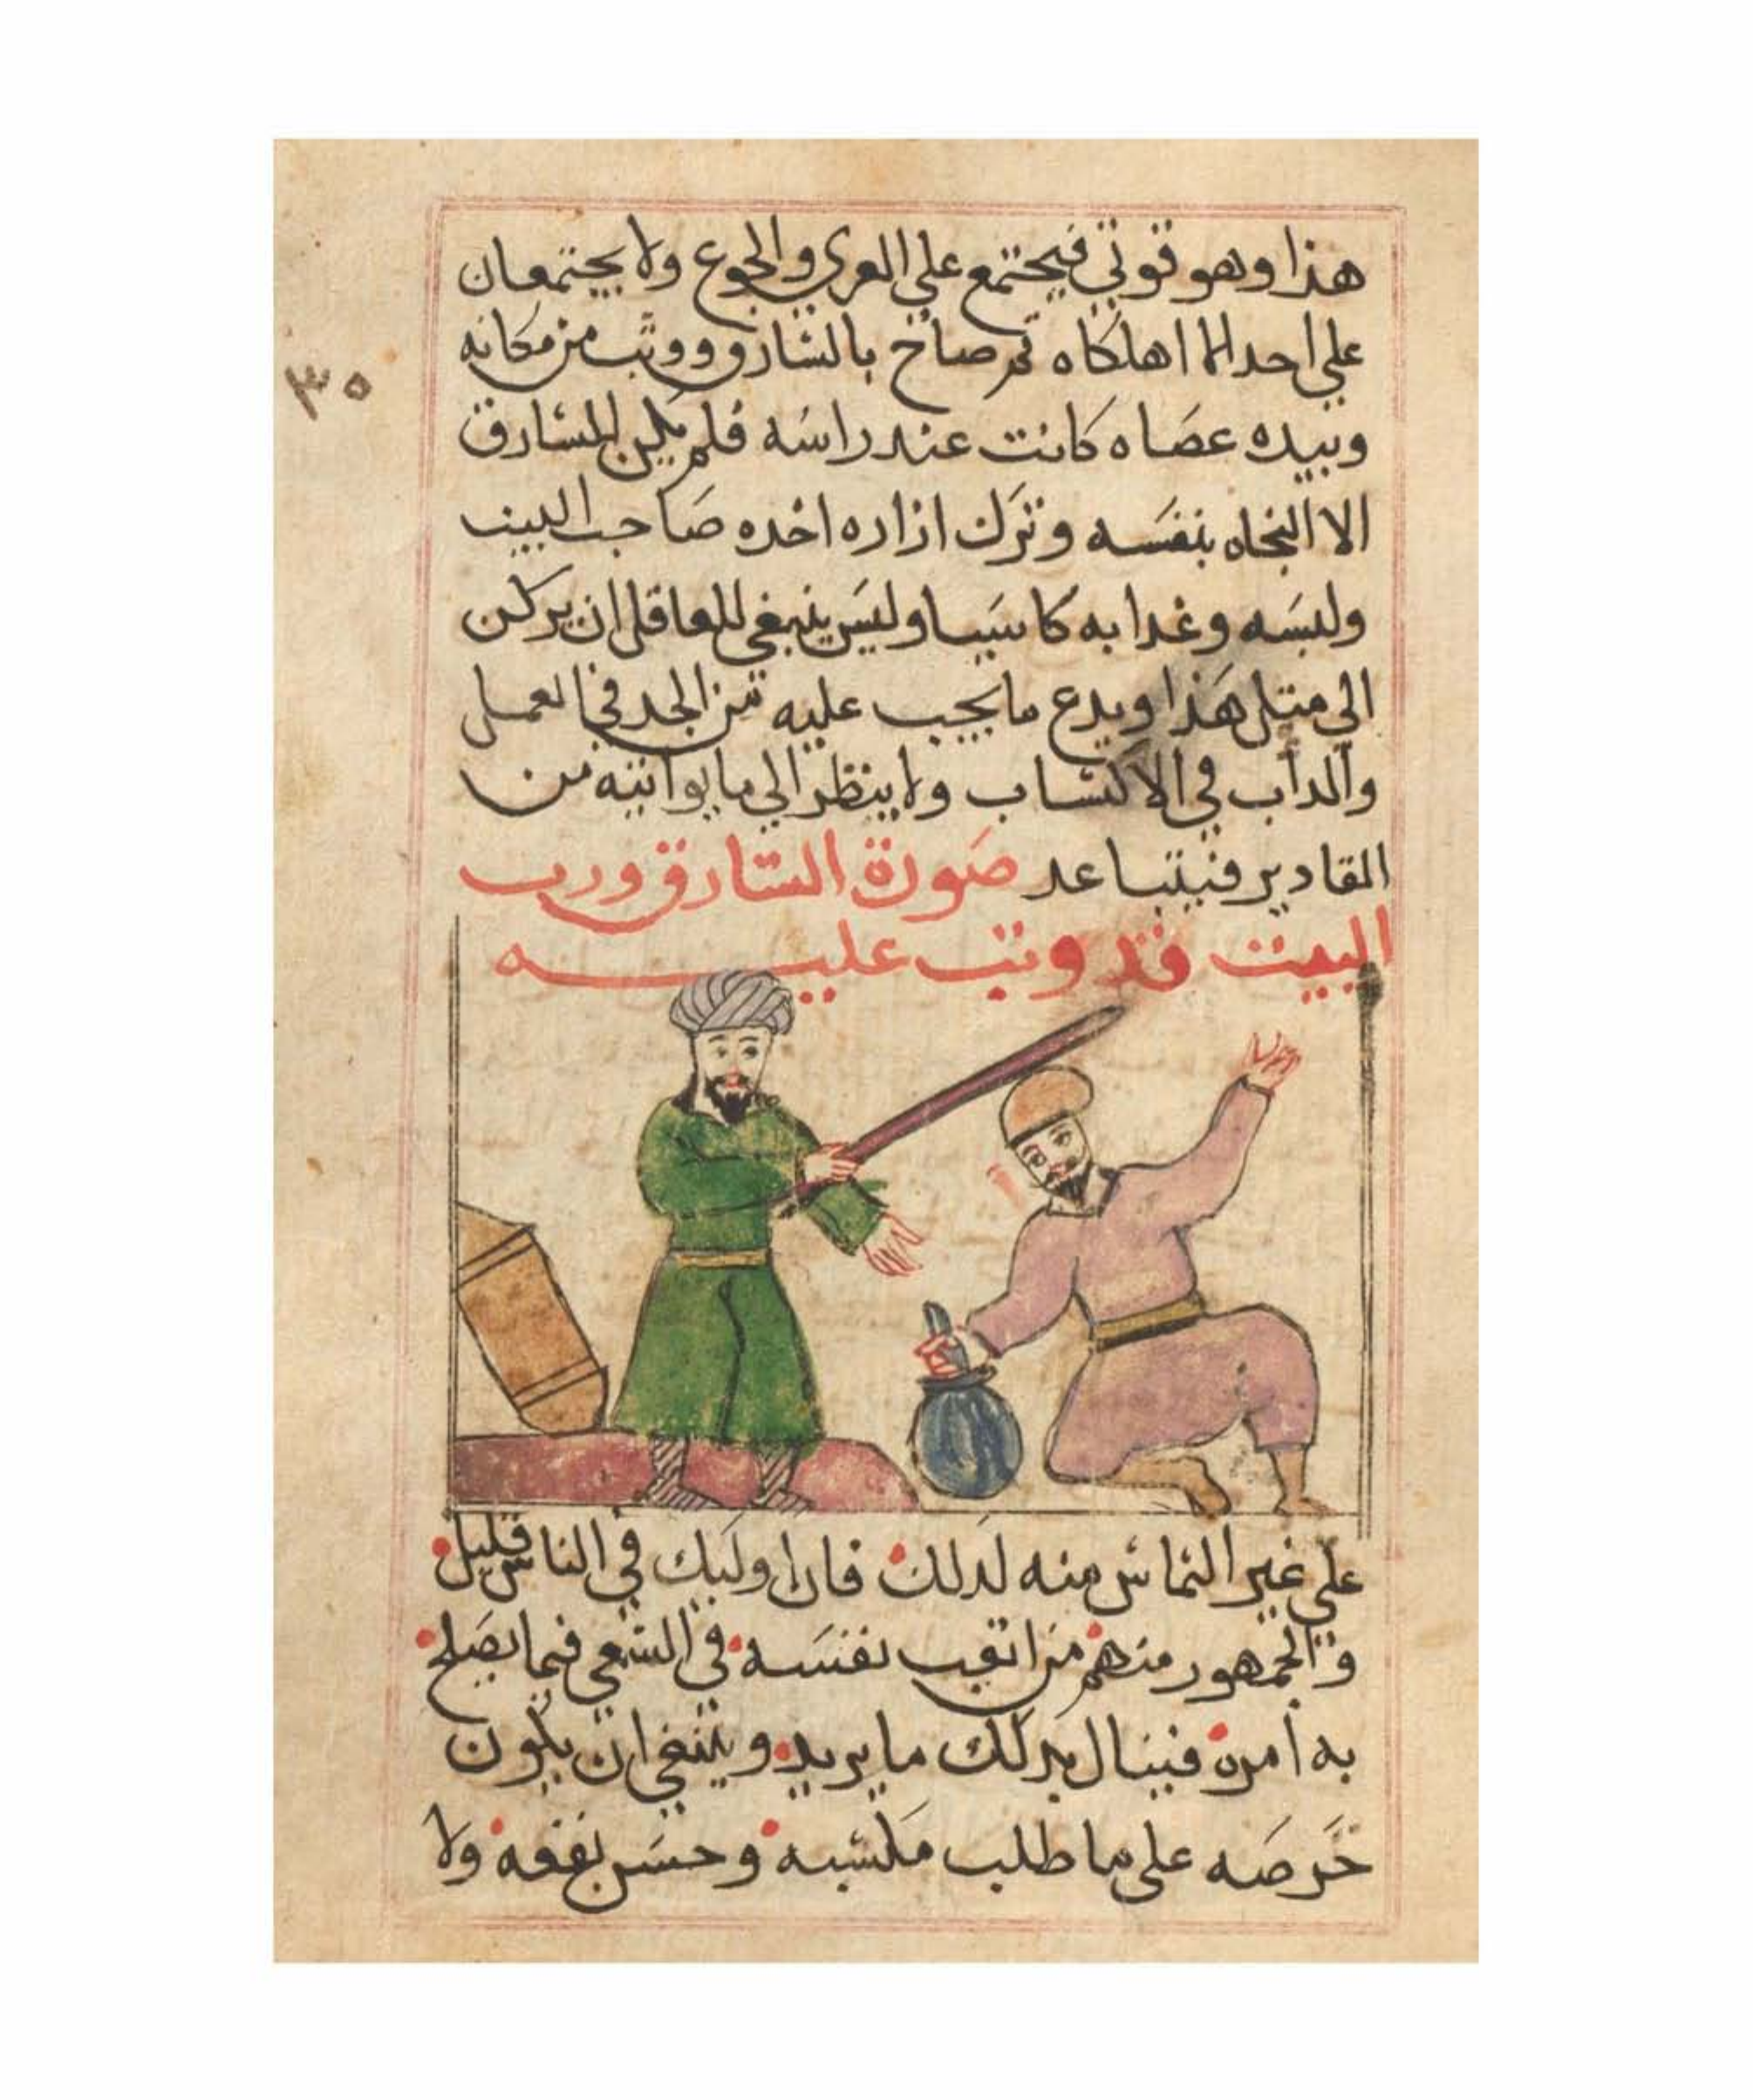 هذا وهو قوتي فيجتمع علي العري والجوع ولا يجتمعان
علي احد الا اهلكاه ثم صاح بالسارق ووثب من مكانه
٣٠
وبيده عصاه كانت عند راسه فلم يكن للسارق
الا النجاه بنفسه وترك ازاره اخده صاحب البيت
ولبسه وغدا به كاسيا وليس ينبغي للعاقل ان يركن
الي متل هذا ويدع ما يجب عليه من الجد في العمل
والداب في الاكتساب ولا ينظر الي ما يواتيه من
المقادير فيتباعد صورة السارق ورب
البيت قد وتب عليه
علي غير التماس منه لدلك فان اوليك في الناس قليل
والجمهور منهم من اتعب نفسه في السعي فيما يصلح
به امره فينال بدلك ما يريد وينبغي ان يكون
حرصه علي ما طلب مكسبه وحسن نفعه ولا